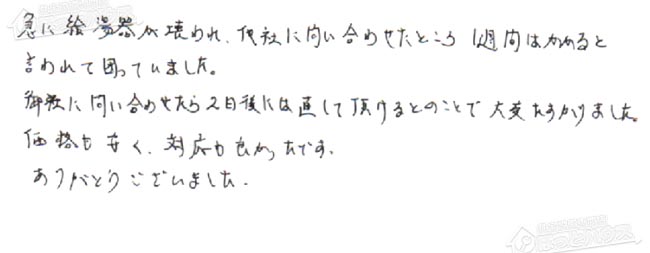 急に給湯器が壊われ、他社に問い合わせたところ 1週間はかかると
言われて困っていました。
御社に問い合わせたら2日後には直して頂けるとのことで大変たすかりました。
価格も安く、対応も良かったです。
ありがとうございました。